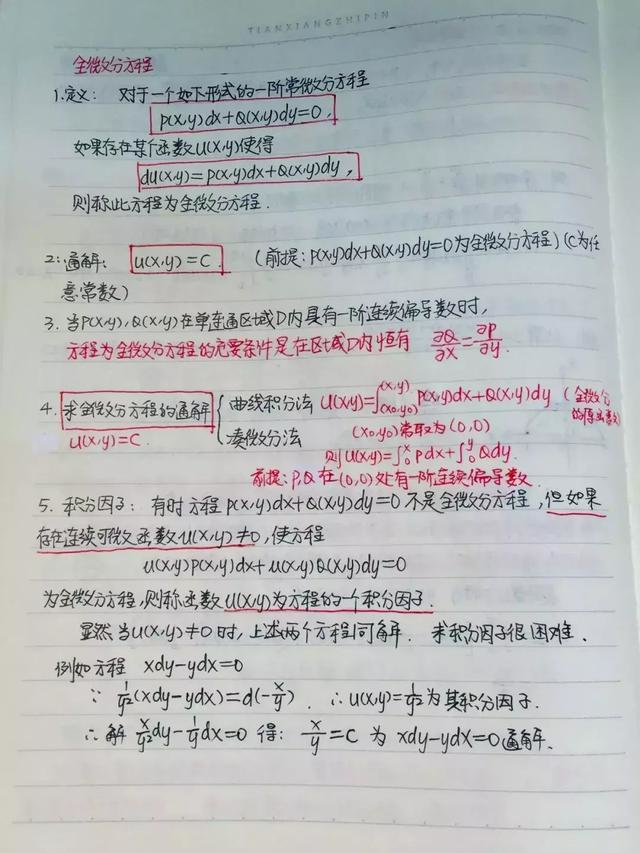 TIANXIANGZHIPIN
全微分方程
1.定义： 对于一个如下形式的一阶常微分方程
P(x,y)dx+Q(x,y)dy=0,
如果存在某个函数u(x,y)使得
du(x,y)=P(x,y)dx+Q(x,y)dy,
则称此方程为全微分方程.
2.通解： u(x,y)=C (前提：P(x,y)dx+Q(x,y)dy=0为全微分方程)(C为任
意常数)
3. 当P(x,y),Q(x,y)在单连通区域D内具有一阶连续偏导数时,
方程为全微分方程的充要条件是在区域D内恒有 ∂Q/∂x=∂P/∂y.
4. 求全微分方程的通解 { 曲线积分法 u(x,y)=∫_(x0,y0)^(x,y) P(x,y)dx+Q(x,y)dy (全微分
u(x,y)=C. 凑微分法 (x0,y0)常取为(0,0) 的原函数)
则u(x,y)=∫_0^x Pdx+∫_0^y Qdy.
前提：P,Q在(0,0)处有一阶连续偏导数.
5. 积分因子： 有时方程P(x,y)dx+Q(x,y)dy=0不是全微分方程,但如果
存在连续可微函数u(x,y)≠0,使方程
u(x,y)P(x,y)dx+u(x,y)Q(x,y)dy=0
为全微分方程,则称函数u(x,y)为方程的一个积分因子.
显然当u(x,y)≠0时,上述两个方程同解. 求积分因子很困难.
例如方程 xdy-ydx=0
∵ 1/y²(xdy-ydx)=d(-x/y). ∴u(x,y)=1/y²为其积分因子.
∴解 x/y²dy-1/ydx=0 得： x/y=C 为 xdy-ydx=0通解.